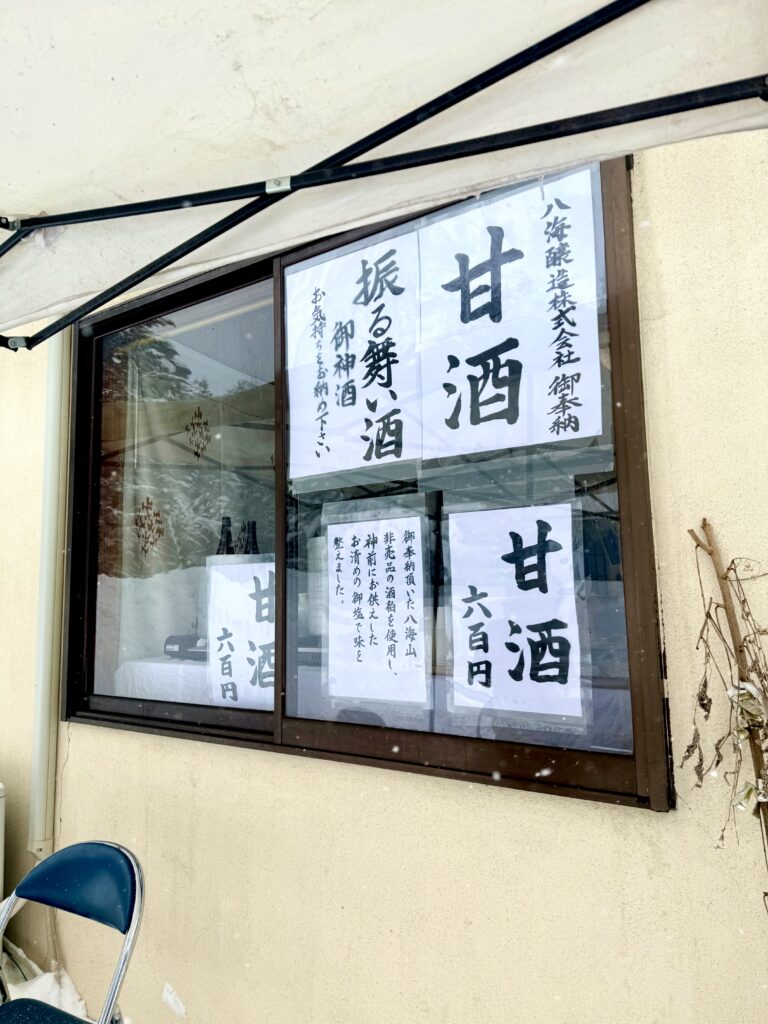 八海醸造株式会社 御奉納
甘酒
振る舞い酒
御神酒
お気持ちをお納め下さい
甘酒
六百円
御奉納頂いた八海山
非売品の酒粕を使用し、
神前にお供えした
お清めの御塩で味を
整えました。
甘酒
六百円